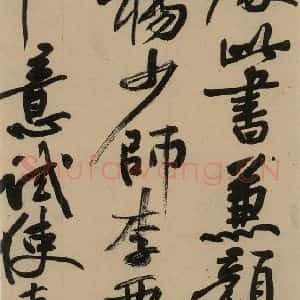 此書兼顏
楊少師李西
意試使
Shufawang.CN